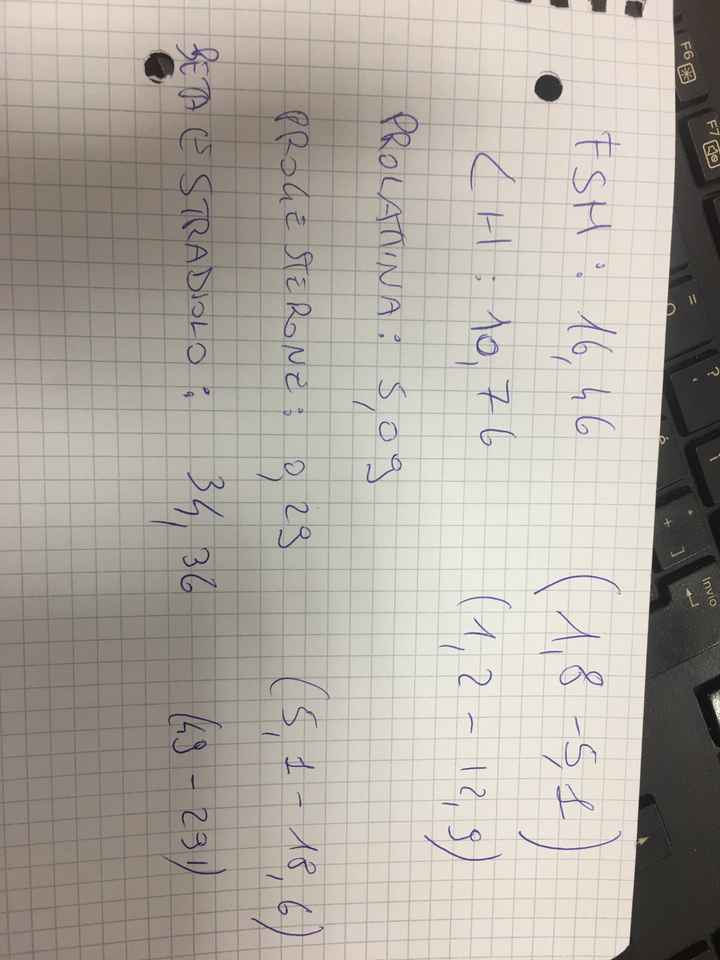 FSH: 16,46 (1,8 - 5,1)
LH: 10,76 (1,2 - 12,9)
PROLATTINA: 5,09
PROGESTERONE: 0,29 (5,1 - 18,6)
BETA ESTRADIOLO: 34,36 (49 - 291)
F6
F7
Invio